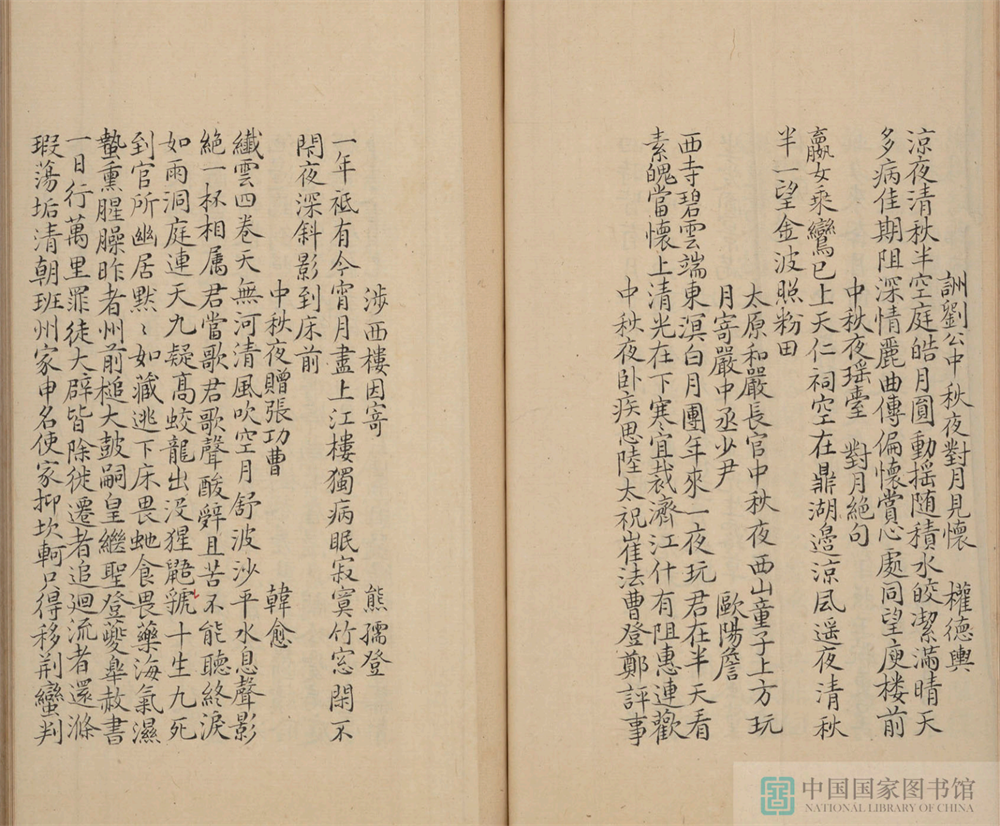 詶劉公中秋夜對月見懷 權德輿
涼夜清秋半空庭皓月圓動揺随積水皎潔滿晴天
多病佳期阻深情麗曲傳偏懷賞心處同望庾楼前
中秋夜瑶臺 對月絕句
嬴女乘鸞已上天仁祠空在鼎湖邉涼風遥夜清秋
半一望金波照粉田
太原和嚴長官中秋夜西山童子上方玩
月寄嚴中丞少尹 歐陽詹
西寺碧雲端東溟白月團年來一夜玩君在半天看
素魄當懷上清光在下寒宜裁濟江什有阻惠連歡
中秋夜卧疾思陸太祝崔法曹登鄭評事
渉西樓因寄 熊孺登
一年祗有今宵月盡上江樓獨病眠寂寞竹窓閉不
閇夜深斜影到床前
中秋夜贈張功曹 韓愈
纖雲四卷天無河清風吹空月舒波沙平水息聲影
絕一杯相属君當歌君歌聲酸辤且苦不能聽終淚
如雨洞庭連天九疑髙蛟龍出没猩鼯號十生九死
到官所幽居默〻如藏逃下床畏虵食畏藥海氣濕
蟄熏腥臊昨者州前槌大鼓嗣皇繼聖登夔皋赦書
一日行萬里罪徒大辟皆除徙遷者追廻流者還滌
瑕蕩垢清朝班州家申名使家抑坎軻只得移荆蠻判
中国国家图书馆
NATIONAL LIBRARY OF CHINA